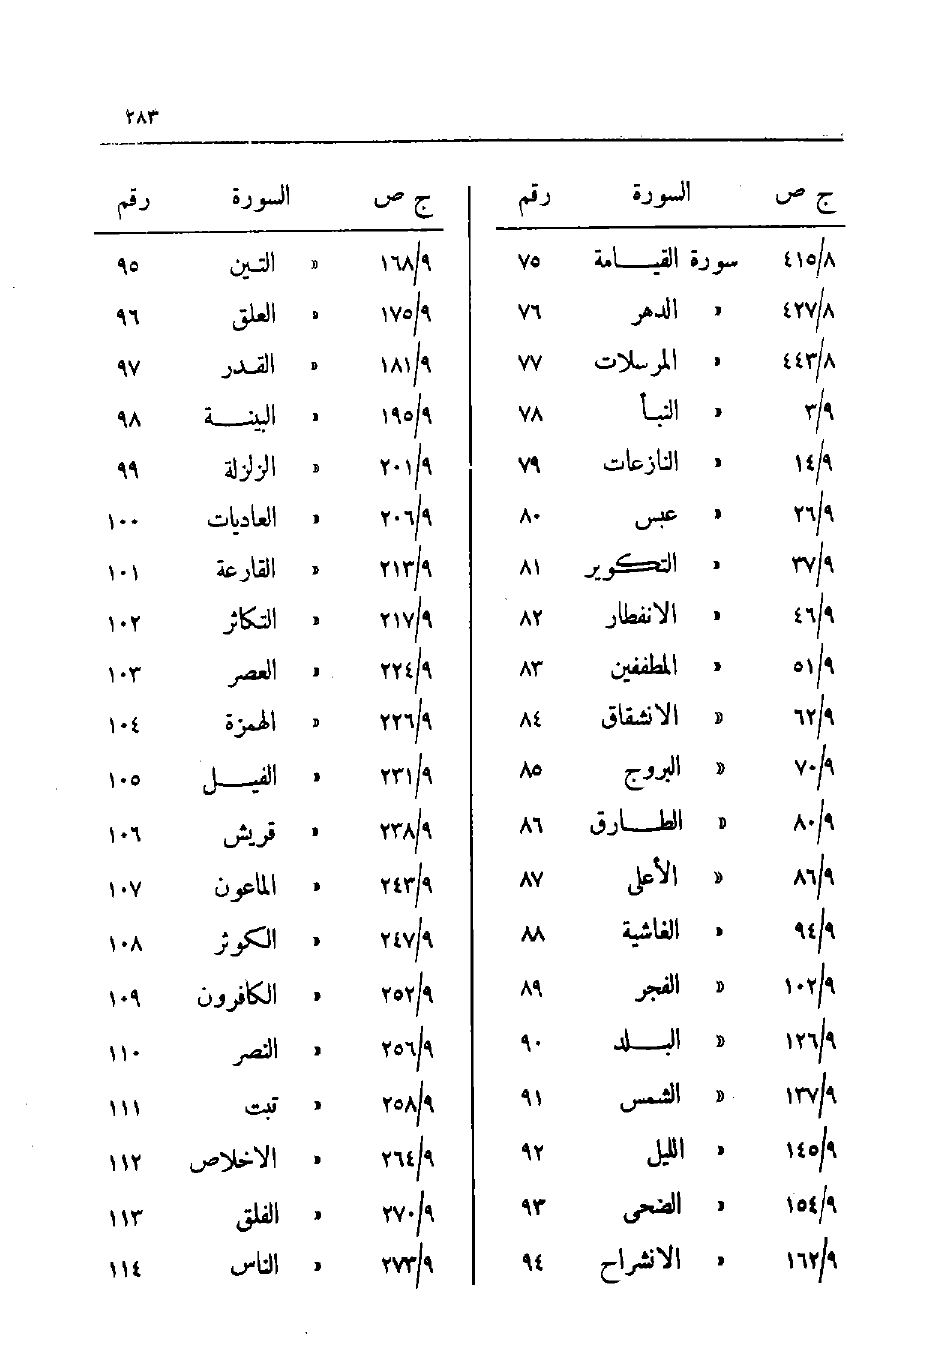 ٢٨٣
ج ص السورة رقم
٤١٥/٨ سورة القيامة ٧٥
٤٢٧/٨ » الدهر ٧٦
٤٤٣/٨ » المرسلات ٧٧
٣/٩ » النبأ ٧٨
١٤/٩ » النازعات ٧٩
٢٦/٩ » عبس ٨٠
٣٧/٩ » التكوير ٨١
٤٦/٩ » الانفطار ٨٢
٥١/٩ » المطففين ٨٣
٦٢/٩ » الانشقاق ٨٤
٧٠/٩ » البروج ٨٥
٨٠/٩ » الطارق ٨٦
٨٦/٩ » الأعلى ٨٧
٩٤/٩ » الغاشية ٨٨
١٠٢/٩ » الفجر ٨٩
١٢٦/٩ » البلد ٩٠
١٣٧/٩ » الشمس ٩١
١٤٥/٩ » الليل ٩٢
١٥٤/٩ » الضحى ٩٣
١٦٢/٩ » الانشراح ٩٤
ج ص السورة رقم
١٦٨/٩ » التين ٩٥
١٧٥/٩ » العلق ٩٦
١٨١/٩ » القدر ٩٧
١٩٥/٩ » البينة ٩٨
٢٠١/٩ » الزلزلة ٩٩
٢٠٦/٩ » العاديات ١٠٠
٢١٣/٩ » القارعة ١٠١
٢١٧/٩ » التكاثر ١٠٢
٢٢٤/٩ » العصر ١٠٣
٢٢٦/٩ » الهمزة ١٠٤
٢٣١/٩ » الفيل ١٠٥
٢٣٨/٩ » قريش ١٠٦
٢٤٣/٩ » الماعون ١٠٧
٢٤٧/٩ » الكوثر ١٠٨
٢٥٢/٩ » الكافرون ١٠٩
٢٥٦/٩ » النصر ١١٠
٢٥٨/٩ » تبت ١١١
٢٦٤/٩ » الاخلاص ١١٢
٢٧٠/٩ » الفلق ١١٣
٢٧٣/٩ » الناس ١١٤